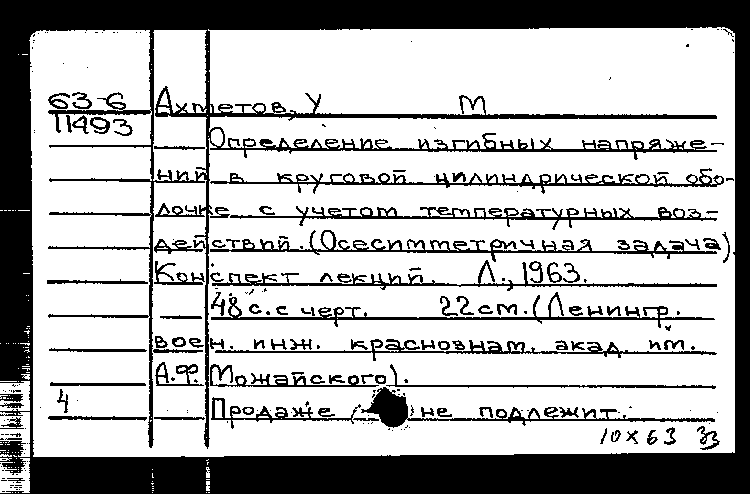 63-6 Ахметов, У М
11493
Определение изгибных напряже-
ний в круговой цилиндрической обо-
лочке с учетом температурных воз-
действий. (Осесимметричная задача)
Конспект лекций. Л., 1963.
48 с. с черт. 22 см. (Ленингр.
воен. инж. краснознам. акад. им.
А.Ф. Можайского).
4 Продаже не подлежит.
10 X 63